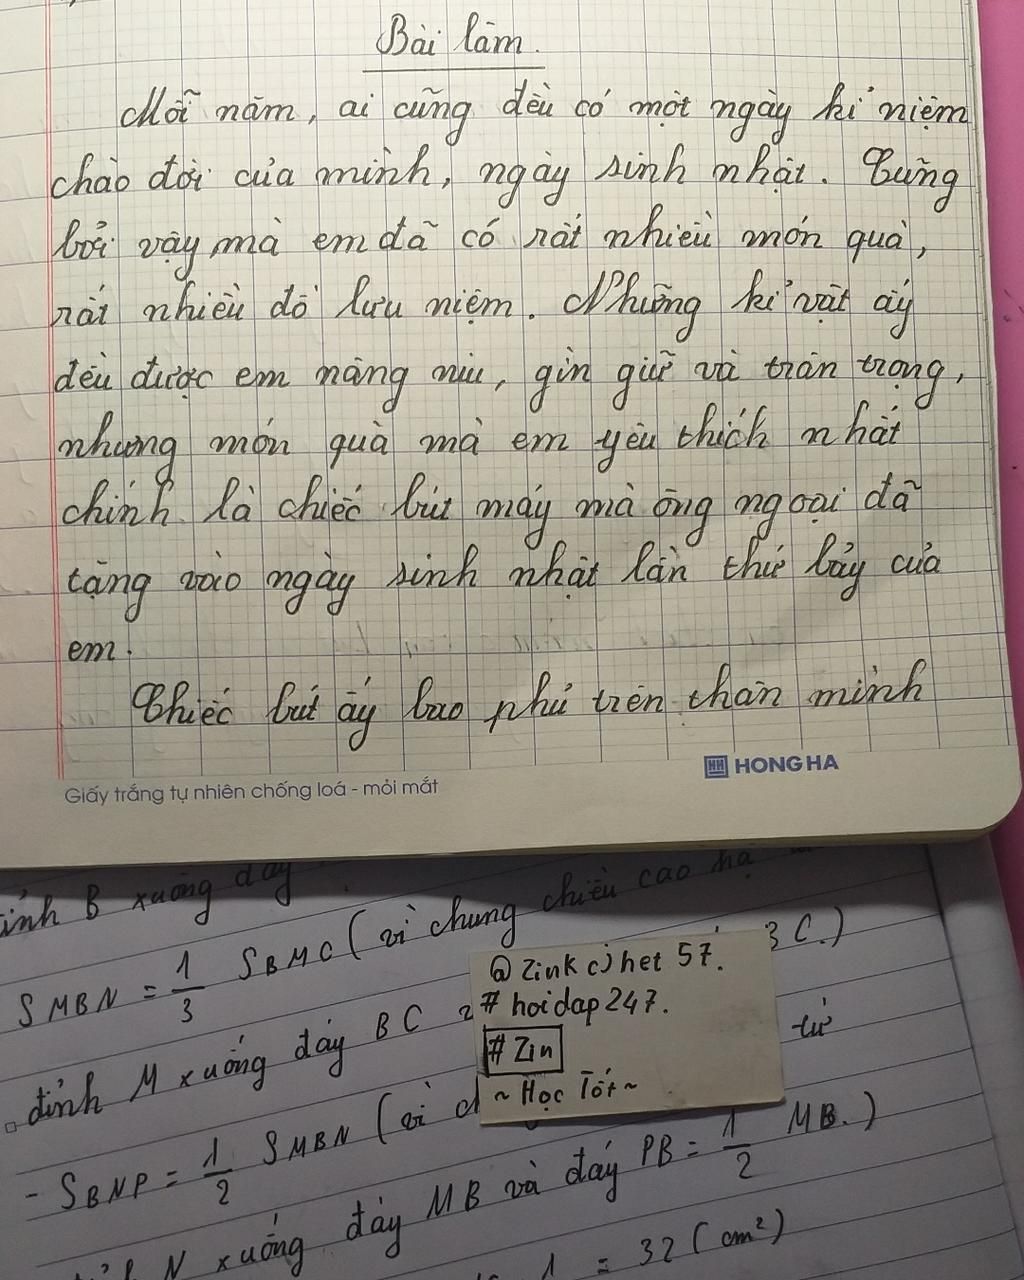 Bài làm.
Mỗi năm, ai cũng đều có một ngày kỉ niệm
chào đời của mình, ngày sinh nhật. Cũng
bởi vậy mà em đã có rất nhiều món quà,
rất nhiều đồ lưu niệm. Những kỉ vật ấy
đều được em nâng niu, gìn giữ và trân trọng,
nhưng món quà mà em yêu thích nhất
chính là chiếc bút máy mà ông ngoại đã
tặng vào ngày sinh nhật lần thứ bảy của
em.
Chiếc bút ấy bao phủ trên thân mình
HH HONG HA
Giấy trắng tự nhiên chống loá - mỏi mắt
B xuống đáy
S MBN = 1/3 S BMC (vì chung chiều cao hạ
đỉnh M xuống đáy BC
3 C.)
@ Zink cjhet 57.
# hoidap247.
# Zin
~ Học Tốt ~
từ
- S BNP = 1/2 S MBN (vì
N xuống đáy MB và đáy PB = 1/2 MB.)
1 = 32 (cm²)